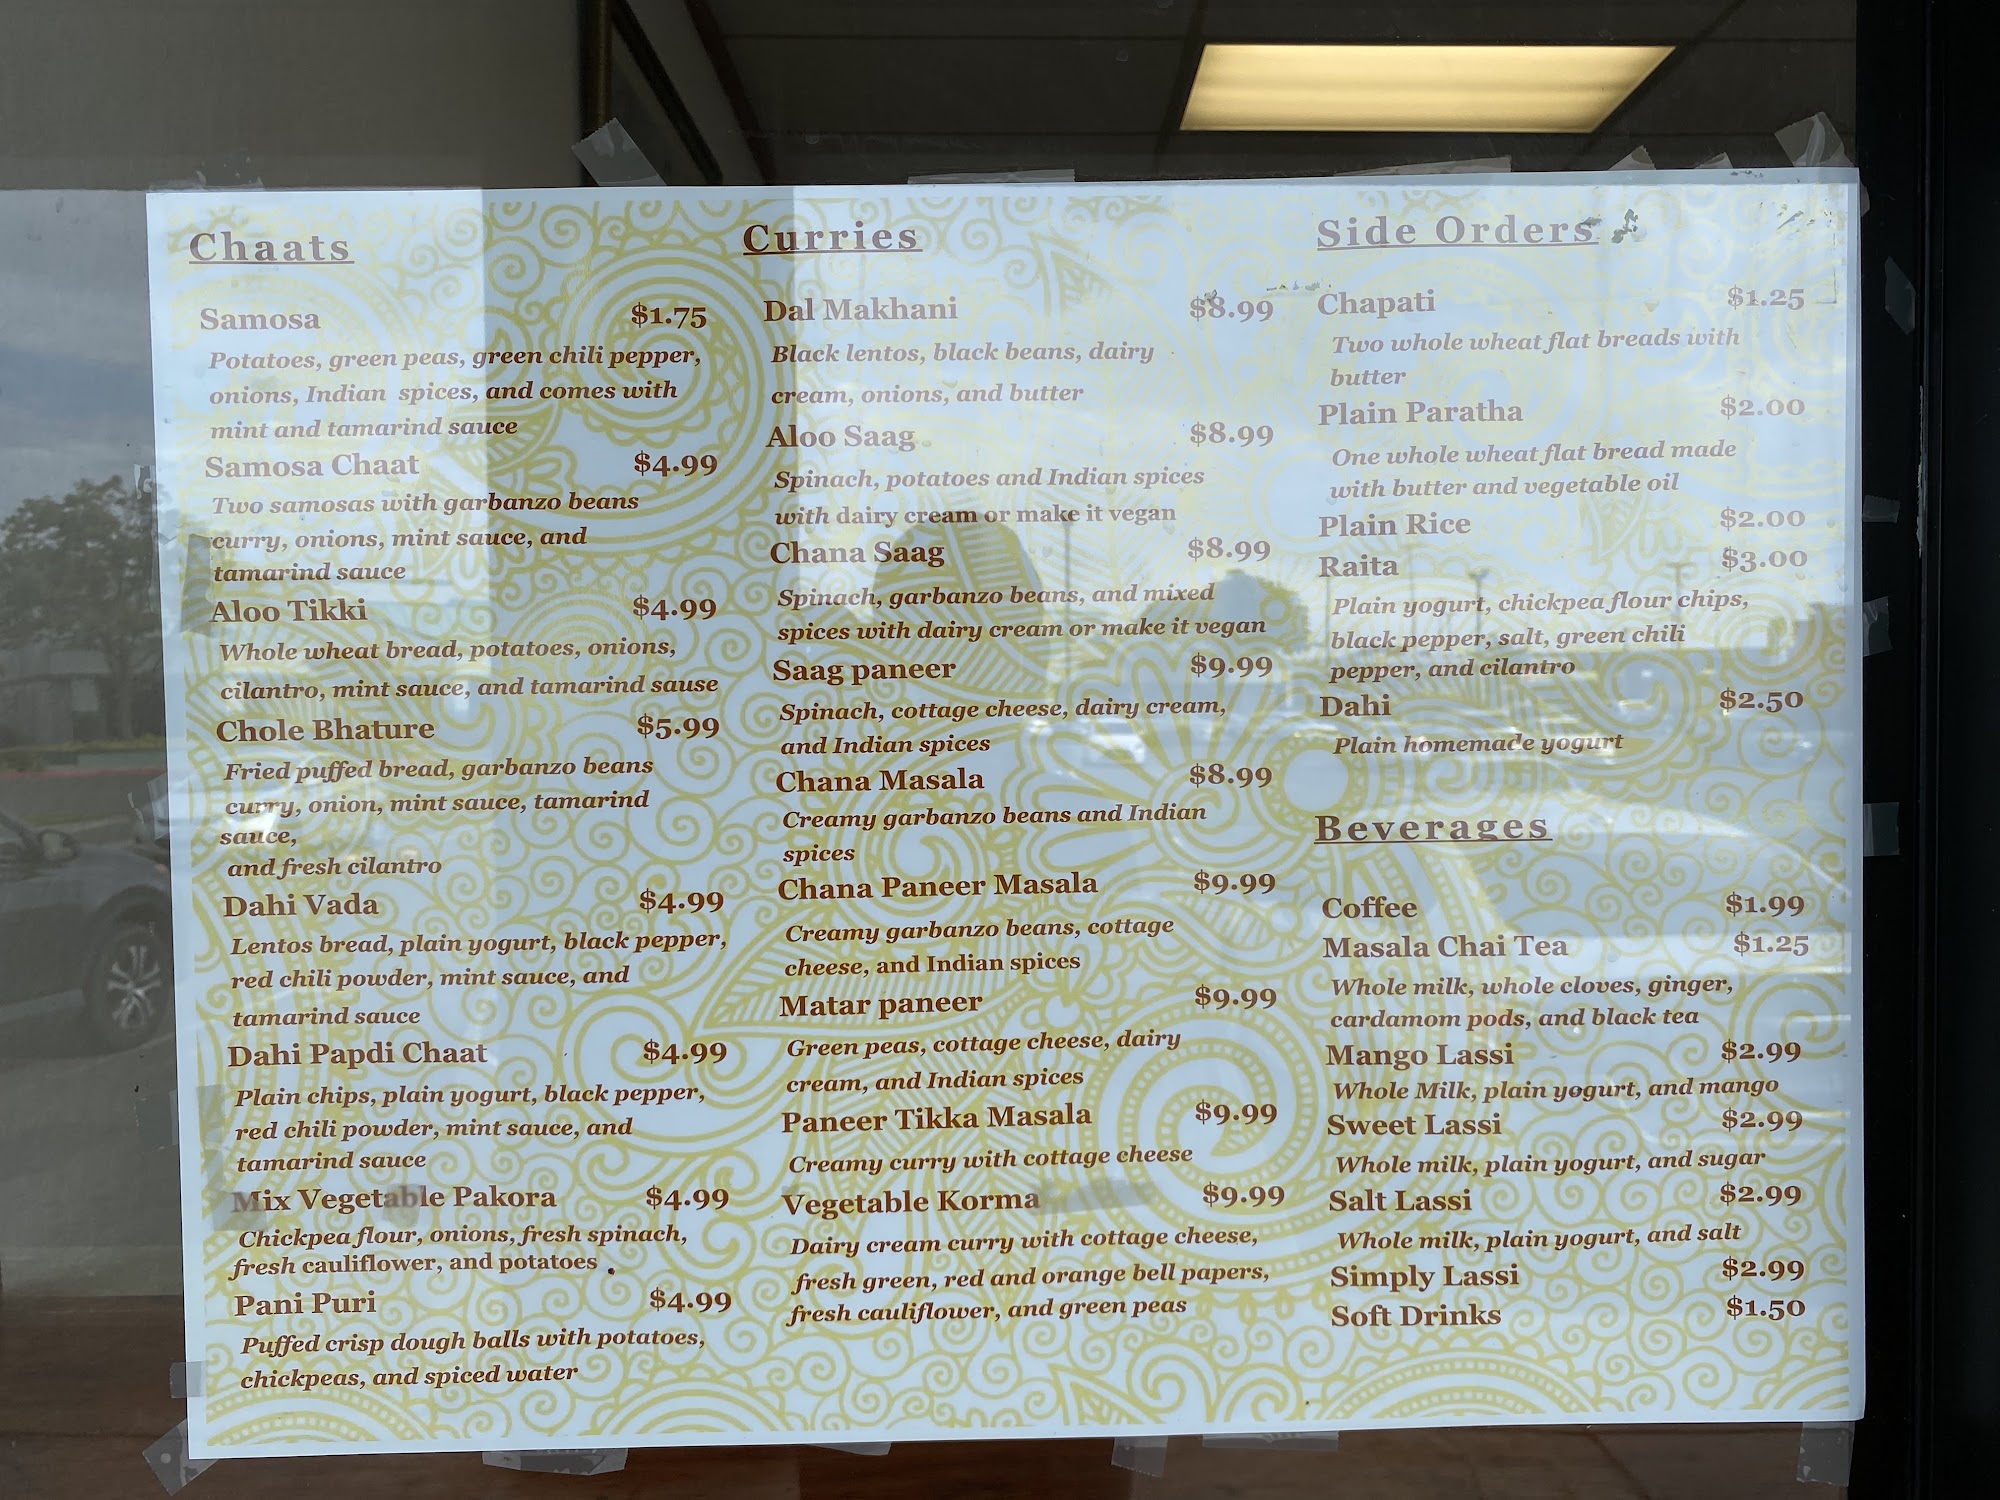 Chaats
Samosa $1.75
Potatoes, green peas, green chili pepper,
onions, Indian spices, and comes with
mint and tamarind sauce
Samosa Chaat $4.99
Two samosas with garbanzo beans
curry, onions, mint sauce, and
tamarind sauce
Aloo Tikki $4.99
Whole wheat bread, potatoes, onions,
cilantro, mint sauce, and tamarind sause
Chole Bhature $5.99
Fried puffed bread, garbanzo beans
curry, onion, mint sauce, tamarind
sauce,
and fresh cilantro
Dahi Vada $4.99
Lentos bread, plain yogurt, black pepper,
red chili powder, mint sauce, and
tamarind sauce
Dahi Papdi Chaat $4.99
Plain chips, plain yogurt, black pepper,
red chili powder, mint sauce, and
tamarind sauce
Mix Vegetable Pakora $4.99
Chickpea flour, onions, fresh spinach,
fresh cauliflower, and potatoes .
Pani Puri $4.99
Puffed crisp dough balls with potatoes,
chickpeas, and spiced water
Curries
Dal Makhani $8.99
Black lentos, black beans, dairy
cream, onions, and butter
Aloo Saag $8.99
Spinach, potatoes and Indian spices
with dairy cream or make it vegan
Chana Saag $8.99
Spinach, garbanzo beans, and mixed
spices with dairy cream or make it vegan
Saag paneer $9.99
Spinach, cottage cheese, dairy cream,
and Indian spices
Chana Masala $8.99
Creamy garbanzo beans and Indian
spices
Chana Paneer Masala $9.99
Creamy garbanzo beans, cottage
cheese, and Indian spices
Matar paneer $9.99
Green peas, cottage cheese, dairy
cream, and Indian spices
Paneer Tikka Masala $9.99
Creamy curry with cottage cheese
Vegetable Korma $9.99
Dairy cream curry with cottage cheese,
fresh green, red and orange bell papers,
fresh cauliflower, and green peas
Side Orders
Chapati $1.25
Two whole wheat flat breads with
butter
Plain Paratha $2.00
One whole wheat flat bread made
with butter and vegetable oil
Plain Rice $2.00
Raita $3.00
Plain yogurt, chickpea flour chips,
black pepper, salt, green chili
pepper, and cilantro
Dahi $2.50
Plain homemade yogurt
Beverages
Coffee $1.99
Masala Chai Tea $1.25
Whole milk, whole cloves, ginger,
cardamom pods, and black tea
Mango Lassi $2.99
Whole Milk, plain yogurt, and mango
Sweet Lassi $2.99
Whole milk, plain yogurt, and sugar
Salt Lassi $2.99
Whole milk, plain yogurt, and salt
Simply Lassi $2.99
Soft Drinks $1.50